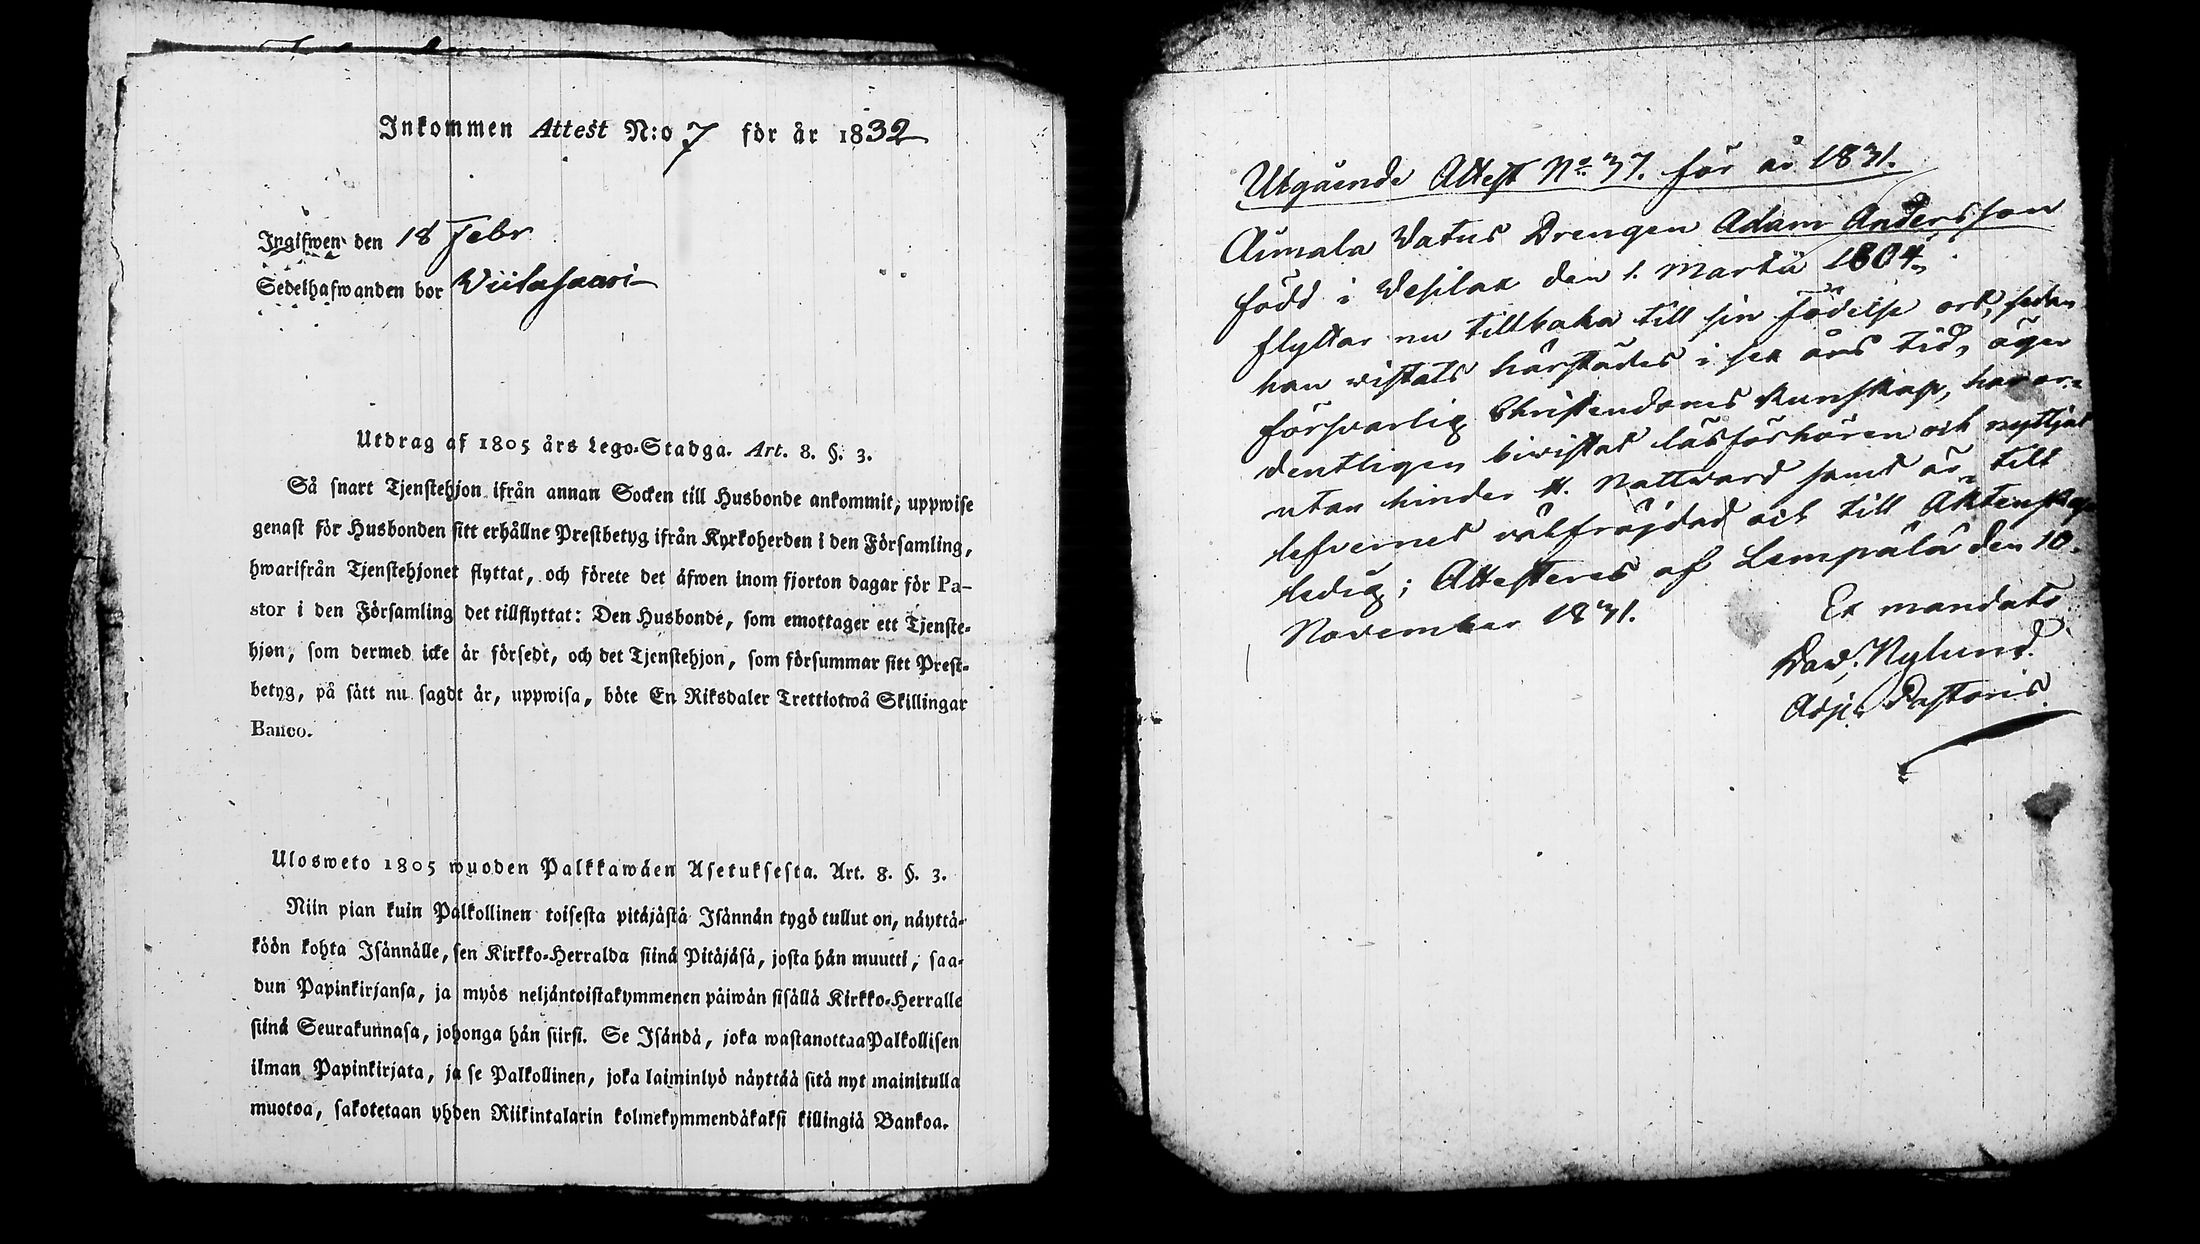 Inkommen Attest N:o 7 för år 1832
Ingifwen den 18 Febr
Sedelhafwanden bor Wiitasaari
Utdrag af 1805 års Lego-Stadga. Art. 8. §. 3.
Så snart Tjenstehjon ifrån annan Socken till Husbonde ankommit, uppwise
genast för Husbonden sitt erhållne Prestbetyg ifrån Kyrkoherden i den Församling,
hwarifrån Tjenstehjonet flyttat, och förete det äfwen inom fjorton dagar för Pa-
stor i den Församling det tillflyttat: Den Husbonde, som emottager ett Tjenste-
hjon, som dermed icke är försedt, och det Tjenstehjon, som försummar sitt Prest-
betyg, på sätt nu sagdt är, uppwisa, böte En Riksdaler Trettiotwå Skillingar
Banco.
Ulosweto 1805 wuoden Palkkawäen Asetuksesta. Art. 8. §. 3.
Niin pian kuin Palkollinen toisesta pitäjästä Isännän tygö tullut on, näyttä-
köön kohta Isännälle, sen Kirkko-Herralda siinä Pitäjäsä, josta hän muutti, saa-
dun Papinkirjansa, ja myös neljäntoistakymmenen päiwän sisällä Kirkko-Herralle
siinä Seurakunnasa, johonga hän siirsi. Se Isändä, joka wastanottaa Palkollisen
ilman Papinkirjata, ja se Palkollinen, joka laiminlyö näyttää sitä nyt mainitulla
muotoa, sakotetaan yhden Riikintalarin kolmekymmendäkaksi killingiä Bankoa.
Utgående Attest No 37. för år 1831.
Aimala Watus Drengen Adam Andersson
född i Wesilax den 1. Martii 1804,
flyttar nu tillbaka till sin födelse ort, sedan
han wistats härstädes i sex års tid, äger
försvarlig Christendoms Kunskap, har or-
dentligen biwistat läsförhören och nyttjat
utan hinder H. Nattward samt är till
lefvernet wälfräjdad och till Äktenskap
ledig; Attesteres af Lempälä den 10.
November 1831.
Ex mandato
Dav. Nylund.
Adj. Pastoris.